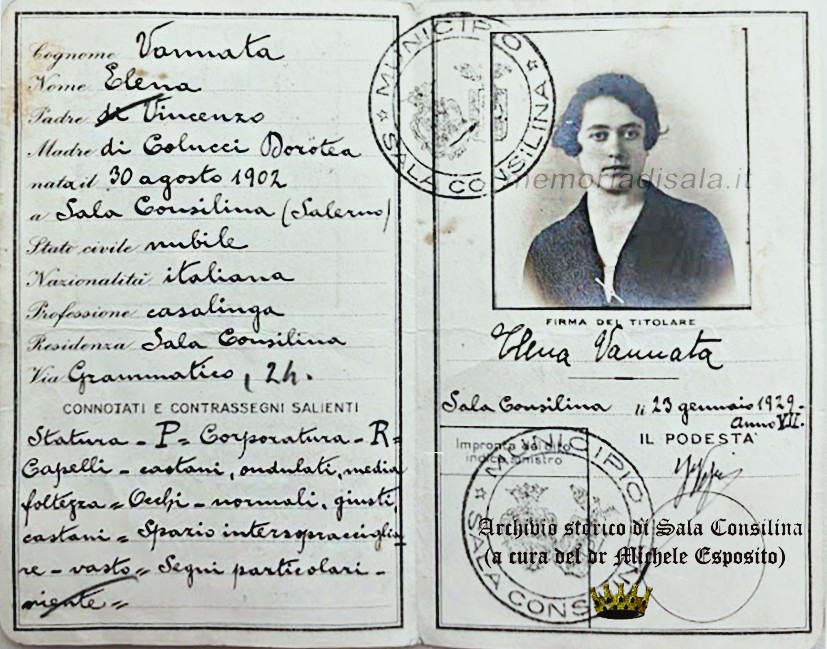 Cognome Vannata
Nome Elena
Padre di Vincenzo
Madre di Colucci Dorotea
nata il 30 agosto 1902
a Sala Consilina (Salerno)
Stato civile nubile
Nazionalità italiana
Professione casalinga
Residenza Sala Consilina
Via Grammatico, 24.
CONNOTATI E CONTRASSEGNI SALIENTI
Statura - P = Corporatura - R =
Capelli - castani, ondulati, media
foltezza = Occhi - normali, giusti,
castani = Spazio intersopracciglia-
re - vasto = Segni particolari -
niente =
MUNICIPIO
SALA CONSILINA
memoriadisala.it
FIRMA DEL TITOLARE
Elena Vannata
Sala Consilina li 23 gennaio 1929.
Anno VII.
IL PODESTA'
Impronta del dito
indice sinistro
MUNICIPIO
SALA CONSILINA
Archivio storico di Sala Consilina
(a cura del dr Michele Esposito)